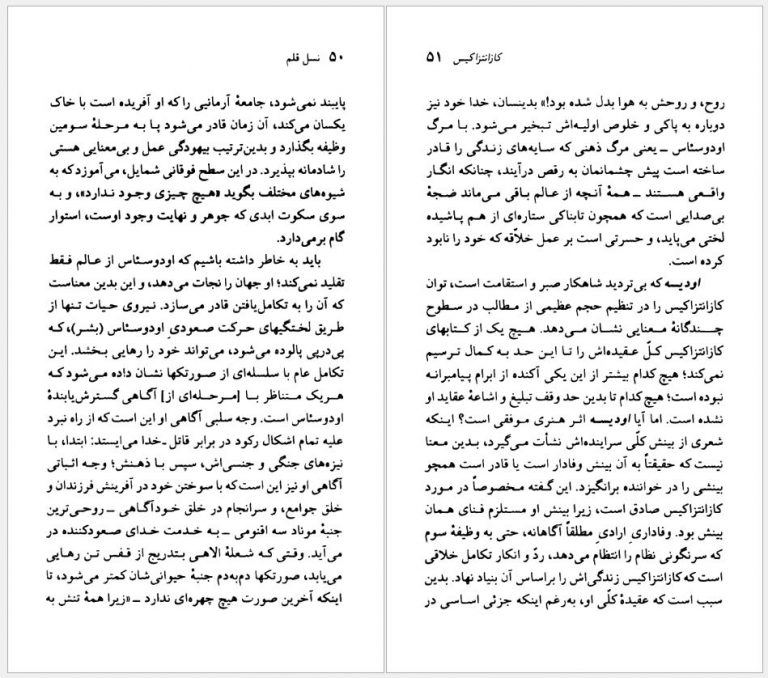 ۵۰ نسل قلم
پایبند نمی‌شود، جامعهٔ آرمانیی را که او آفریده است با خاک
یکسان می‌کند، آن زمان قادر می‌شود پا به مرحلهٔ سومین
وظیفه بگذارد و بدین‌ترتیب بیهودگی عمل و بی‌معنایی هستی
را شادمانه بپذیرد. در این سطح فوقانی شمایل، می‌آموزد که به
شیوه‌های مختلف بگوید «هیچ چیزی وجود ندارد»، و به
سوی سکوت ابدی که جوهر و نهایت وجود اوست، استوار
گام برمی‌دارد.
باید به خاطر داشته باشیم که اودوسئاس از عالم فقط
تقلید نمی‌کند؛ او جهان را نجات می‌دهد، و این بدین معناست
که آن را به تکامل‌یافتن قادر می‌سازد. نیروی حیات تنها از
طریق لختگیهای حرکت صعودیِ اودوسئاس (بشر)، که
پی‌درپی پالوده می‌شود، می‌تواند خود را رهایی بخشد. این
تکامل عام با سلسله‌ای از صورتکها نشان داده می‌شود که
هریک متناظر با [مرحله‌ای از] آگاهی گسترش‌یابندهٔ
اودوسئاس است. وجه سلبی آگاهی او این است که از راه نبرد
علیه تمام اشکال رکود در برابر قاتل ـ خدا می‌ایستد: ابتدا، با
نیزه‌های جنگی و جنسی‌اش، سپس با ذهنش؛ وجه اثباتی
آگاهی او نیز این است که با سوختن خود در آفرینش فرزندان و
خلق جوامع، و سرانجام در خلق خودآگاهی ــ روحی‌ترین
جنبهٔ موناد سه اقنومی ــ به خدمت خدای صعودکننده در
می‌آید. وقتی که شعلهٔ الاهی بتدریج از قفس تن رهایی
می‌یابد، صورتکها دم‌به‌دم جنبهٔ حیوانی‌شان کمتر می‌شود، تا
اینکه آخرین صورت هیچ چهره‌ای ندارد ــ «زیرا همهٔ تنش به
کازانتزاکیس ۵۱
روح، و روحش به هوا بدل شده بود!» بدینسان، خدا خود نیز
دوباره به پاکی و خلوص اولیه‌اش تبخیر می‌شود. با مرگ
اودوسئاس ــ یعنی مرگ ذهنی که سایه‌های زندگی را قادر
ساخته است پیش چشمانمان به رقص درآیند، چنانکه انگار
واقعی هستند ــ همهٔ آنچه از عالم باقی می‌ماند ضجهٔ
بی‌صدایی است که همچون تابناکی ستاره‌ای از هم پاشیده
لختی می‌پاید، و حسرتی است بر عمل خلّاقه که خود را نابود
کرده است.
اودیسه که بی‌تردید شاهکار صبر و استقامت است، توان
کازانتزاکیس را در تنظیم حجم عظیمی از مطالب در سطوح
چندگانهٔ معنایی نشان می‌دهد. هیچ یک از کتابهای
کازانتزاکیس کلّ عقیده‌اش را تا این حد به کمال ترسیم
نمی‌کند؛ هیچ کدام بیشتر از این یکی آکنده از ابرام پیامبرانه
نبوده است؛ هیچ‌کدام تا بدین حد وقف تبلیغ و اشاعهٔ عقاید او
نشده است. اما آیا اودیسه اثر هنری موفقی است؟ اینکه
شعری از بینش کلّی سراینده‌اش نشأت می‌گیرد، بدین معنا
نیست که حقیقتاً به آن بینش وفادار است یا قادر است همچو
بینشی را در خواننده برانگیزد. این گفته مخصوصاً در مورد
کازانتزاکیس صادق است، زیرا بینش او مستلزم فنای همان
بینش بود. وفاداریِ ارادیِ مطلقاً آگاهانه، حتی به وظیفهٔ سوم
که سرنگونی نظام را انتظام می‌دهد، ردّ و انکار تکامل خلاقی
است که کازانتزاکیس زندگی‌اش را براساس آن بنیاد نهاد. بدین
سبب است که عقیدهٔ کلّی او، به‌رغم اینکه جزئی اساسی در